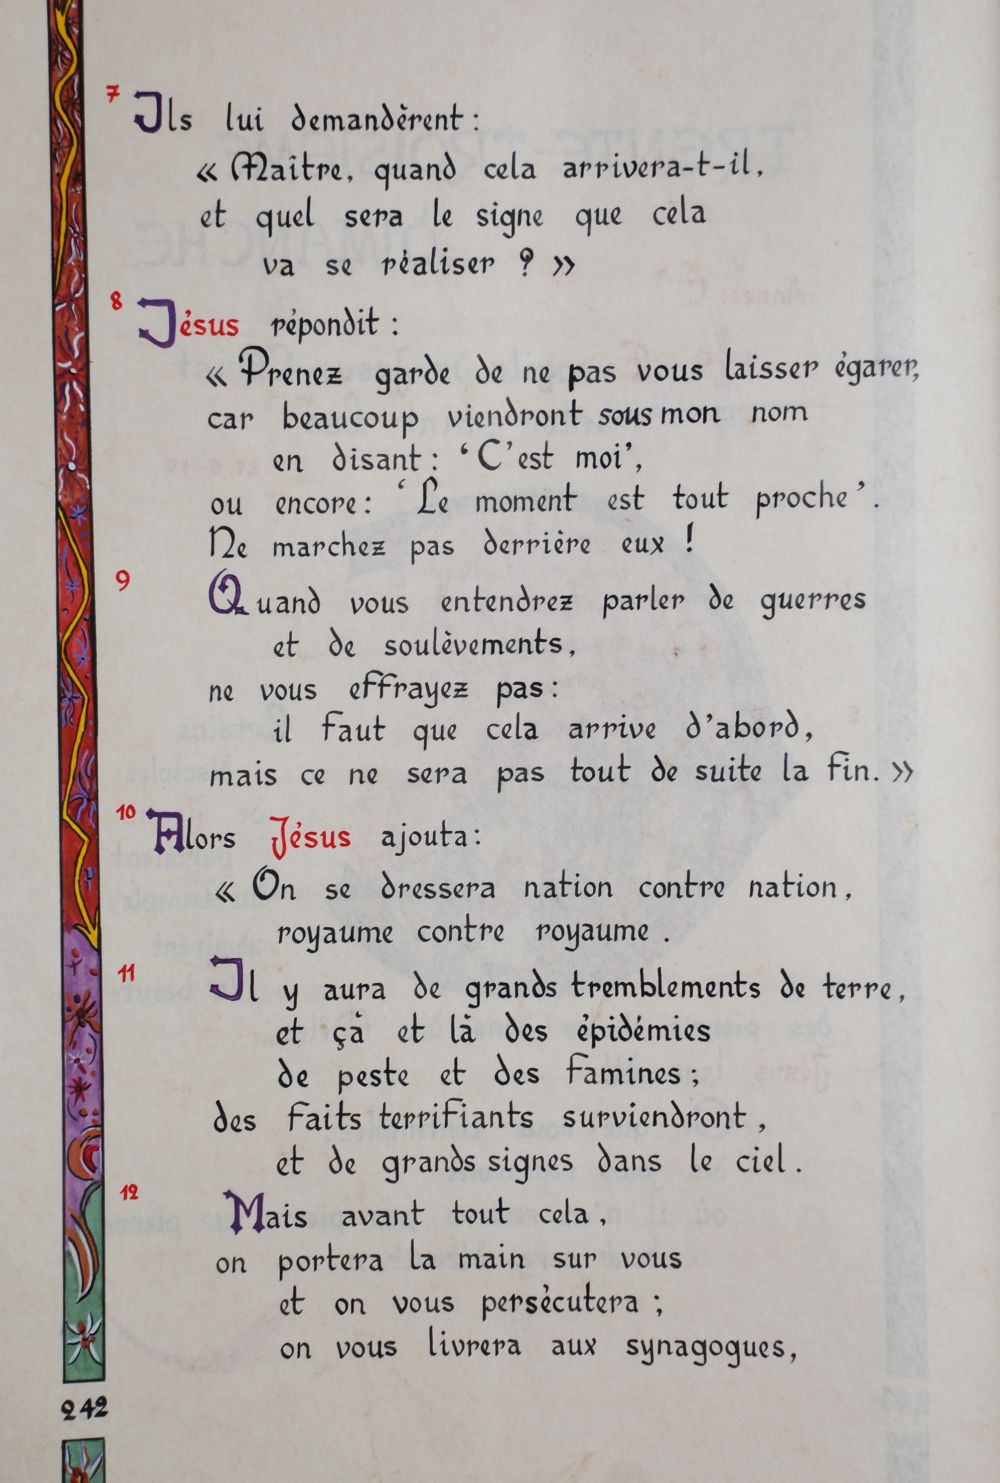 7 Ils lui demandèrent :
« Maître, quand cela arrivera-t-il,
et quel sera le signe que cela
va se réaliser ? »
8 Jésus répondit :
« Prenez garde de ne pas vous laisser égarer,
car beaucoup viendront sous mon nom
en disant : ‘C’est moi’,
ou encore : ‘Le moment est tout proche’.
Ne marchez pas derrière eux !
9 Quand vous entendrez parler de guerres
et de soulèvements,
ne vous effrayez pas :
il faut que cela arrive d’abord,
mais ce ne sera pas tout de suite la fin. »
10 Alors Jésus ajouta :
« On se dressera nation contre nation,
royaume contre royaume .
11 Il y aura de grands tremblements de terre,
et çà et là des épidémies
de peste et des famines ;
des faits terrifiants surviendront ,
et de grands signes dans le ciel .
12 Mais avant tout cela ,
on portera la main sur vous
et on vous persécutera ;
on vous livrera aux synagogues,
242